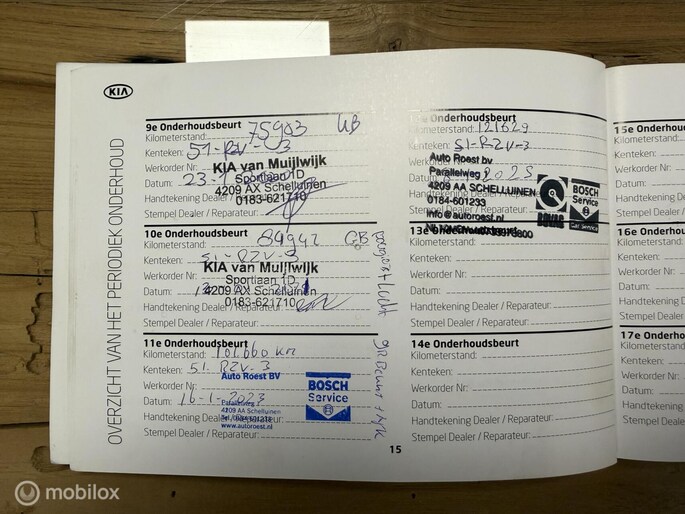 KIA
OVERZICHT VAN HET PERIODIEK ONDERHOUD
9e Onderhoudsbeurt
Kilometerstand: 75903
Kenteken: 51-RZV-3
Werkorder Nr:
KIA van Muijlwijk
Sportlaan 1D
Datum: 23-
4209 AX Schelluinen
Handtekening Dealer / Reparateur:
0183-621710
Stempel Dealer / Reparateur:
10e Onderhoudsbeurt
Kilometerstand: 89942 GB
Kenteken: 51-RZV-3
KIA van Muijlwijk
Werkorder Nr:
Sportlaan 1D
Datum:
4209 AX Schelluinen
0183-621710
Handtekening Dealer / Reparateur:
Stempel Dealer / Reparateur:
11e Onderhoudsbeurt
Kilometerstand: 101.660 km
Kenteken: 51-RZV-3
Auto Roest BV
Werkorder Nr:
Datum: 16-1-2023
Parallelweg
4209 AA Schelluinen
Handtekening Dealer / Reparateur:
www.autoroest.nl
Stempel Dealer / Reparateur:
BOSCH
Service
Onderhoudsbeurt
Kilometerstand: 121629
Kenteken: 51-RZV-3
Auto Roest bv
Parallelweg
2025
4209 AA SCHELLUINEN
0184-601233
info@autoroest.nl
BOVAG
BOSCH
Service
Car Service
13e Onderhoudsbeurt
Kilometerstand:
Kenteken:
Werkorder Nr:
Datum:
Handtekening Dealer / Reparateur:
Stempel Dealer / Reparateur:
14e Onderhoudsbeurt
Kilometerstand:
Kenteken:
Werkorder Nr:
Datum:
Handtekening Dealer / Reparateur:
Stempel Dealer / Reparateur:
15
15e Onderho
Kilometerstand
Kenteken:
Werkorder Nr:
Datum:
Handtekening
Stempel Deale
16e Onderho
Kilometerstan
Kenteken:
Werkorder N
Datum:
Handtekenin
Stempel Dea
17e Onderho
Kilometersta
Kenteken:
Werkorder
Datum:
Handteken
Stempel De
mobilox